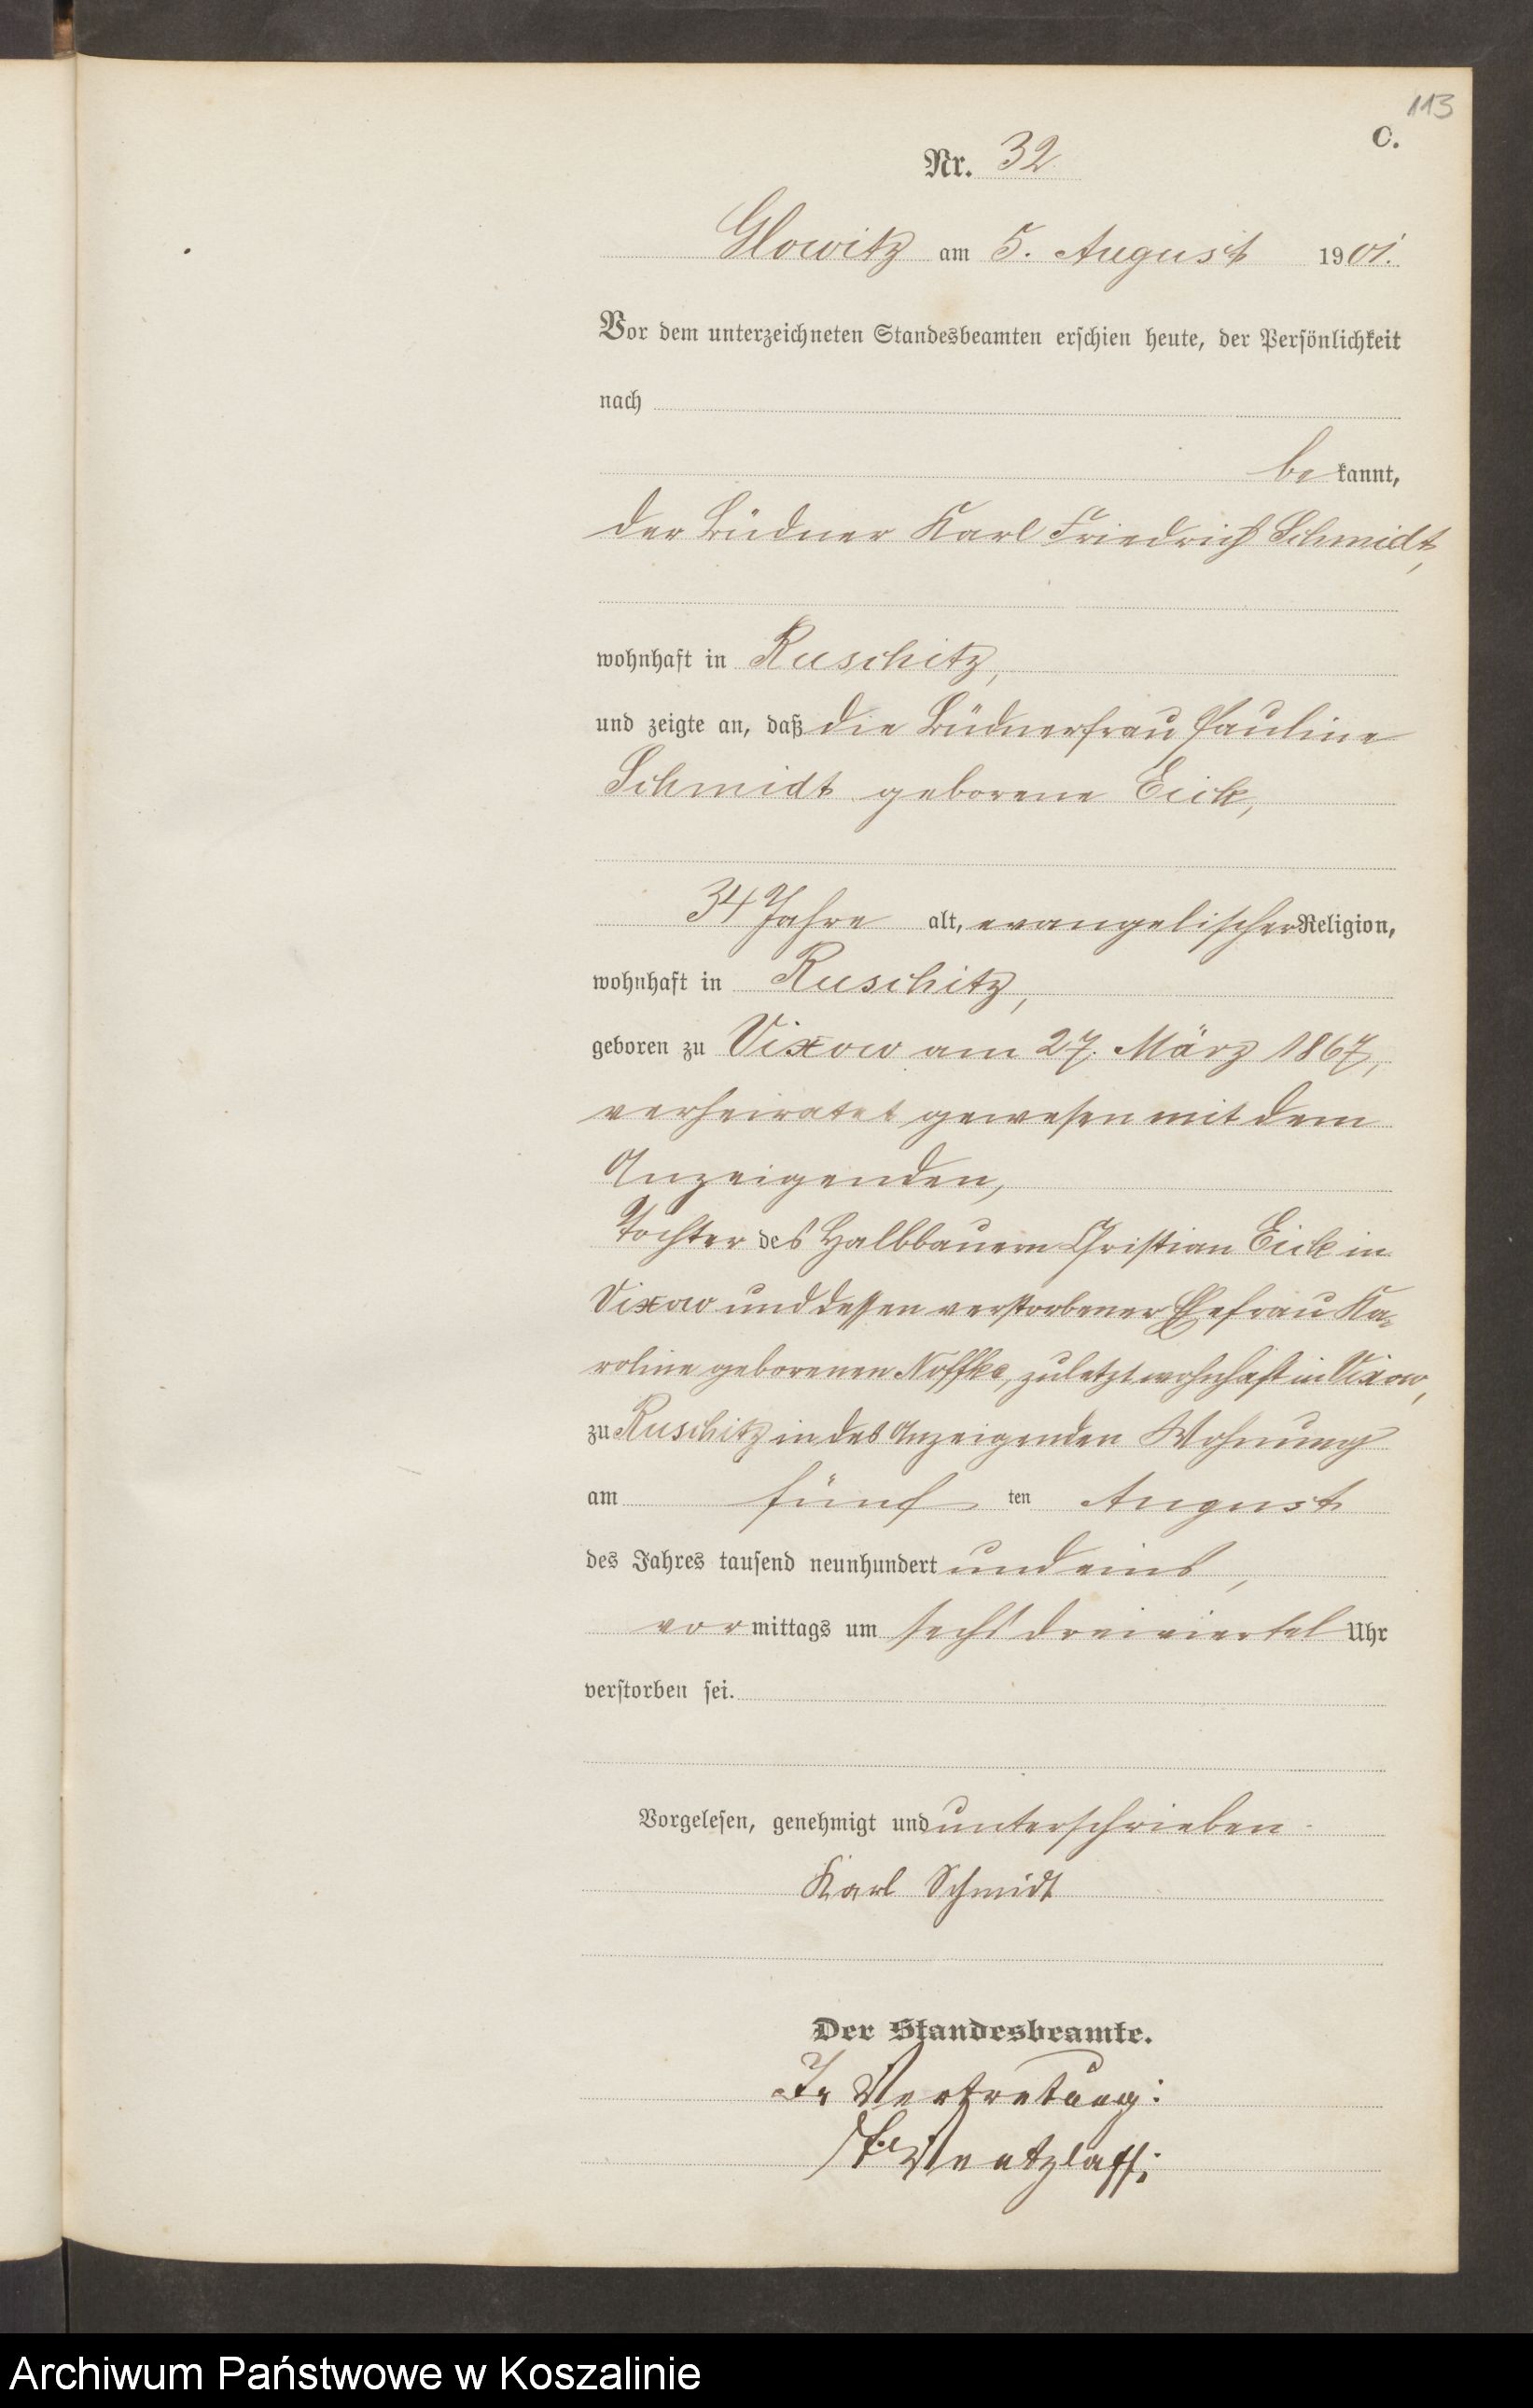 113
C.
Nr. 32
Glowitz am 5. August 1901.
Vor dem unterzeichneten Standesbeamten erschien heute, der Persönlichkeit
nach
bekannt,
der Büdner Karl Friedrich Schmidt,
wohnhaft in Ruschitz,
und zeigte an, daß die Büdnerfrau Pauline
Schmidt geborene Eick,
34 Jahre alt, evangelischer Religion,
wohnhaft in Ruschitz,
geboren zu Vixow am 27. März 1867,
verheiratet gewesen mit dem
Anzeigenden,
Tochter des Halbbauern Christian Eick in
Vixow und dessen verstorbener Ehefrau Ka-
roline geborenen Noffke, zuletzt wohnhaft in Vixow,
zu Ruschitz in des Anzeigenden Wohnung
am fünften August
des Jahres tausend neunhundert und eins,
vormittags um sechs dreiviertel Uhr
verstorben sei.
Vorgelesen, genehmigt und unterschrieben.
Karl Schmidt
Der Standesbeamte.
In Vertretung:
Wentzlaff.
Archiwum Państwowe w Koszalinie